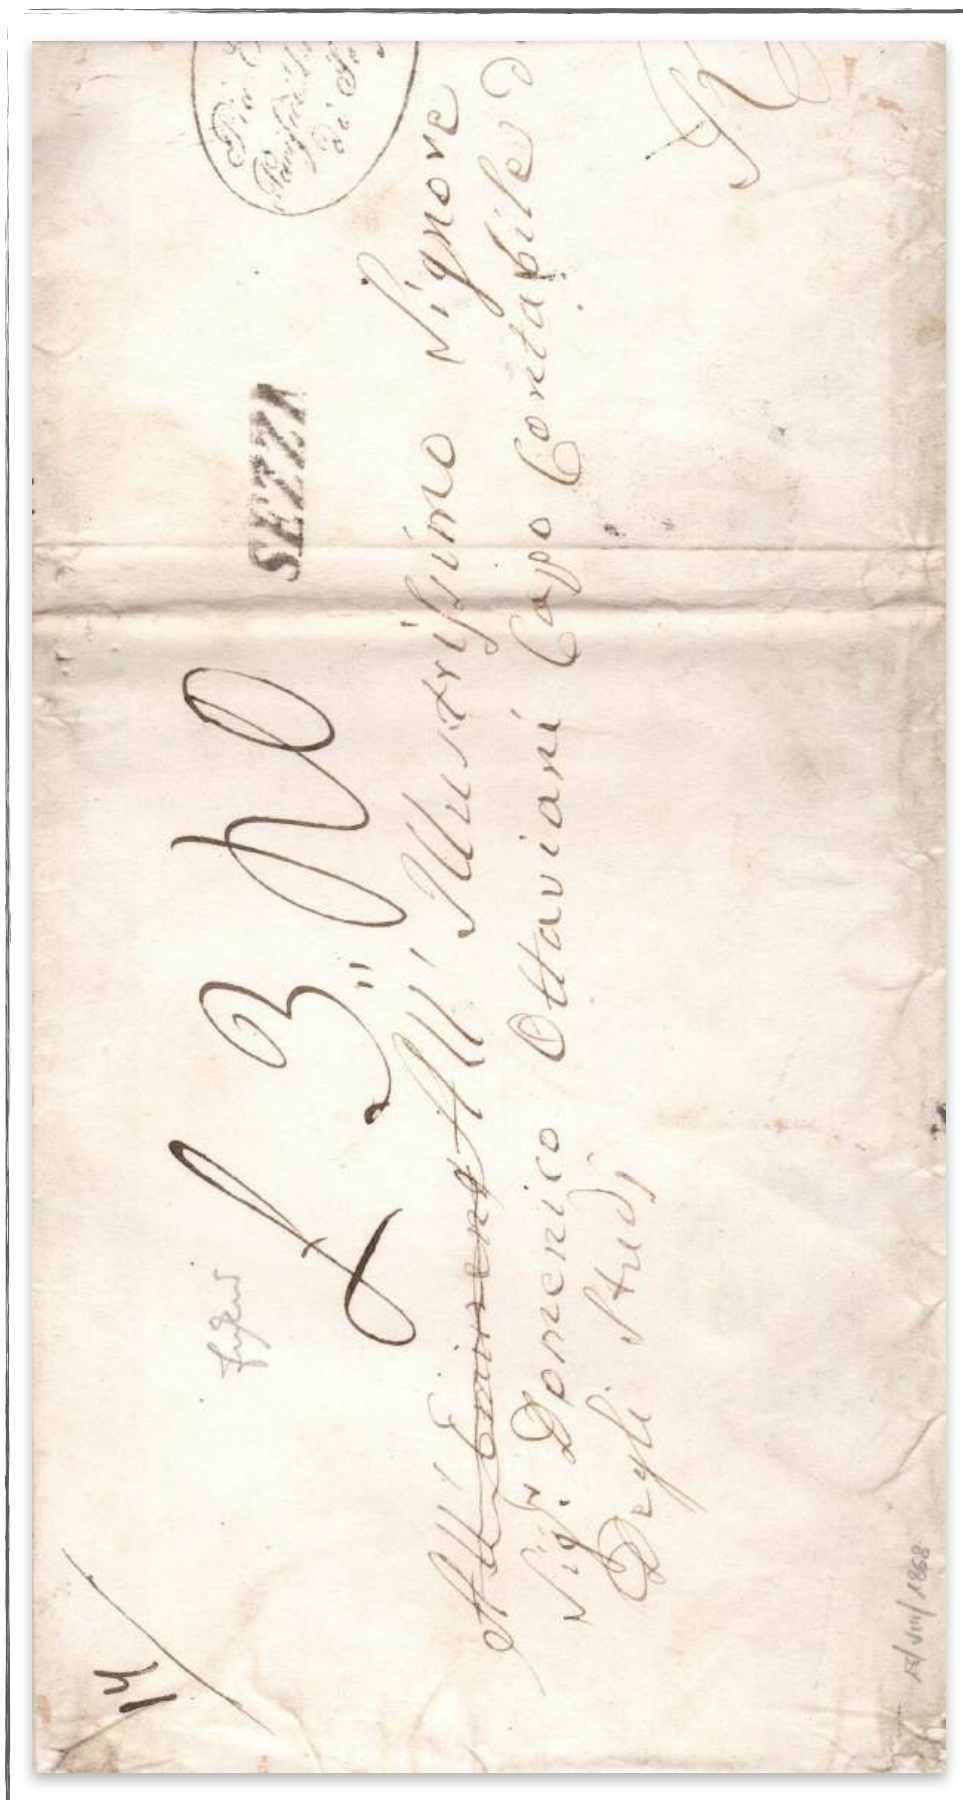 14
SEZZA
£ 3"
All' Eminenz All' Illustrissimo Signore
Sig.r Domenico Ottaviani Capo Contabile
Degli Studj
1868